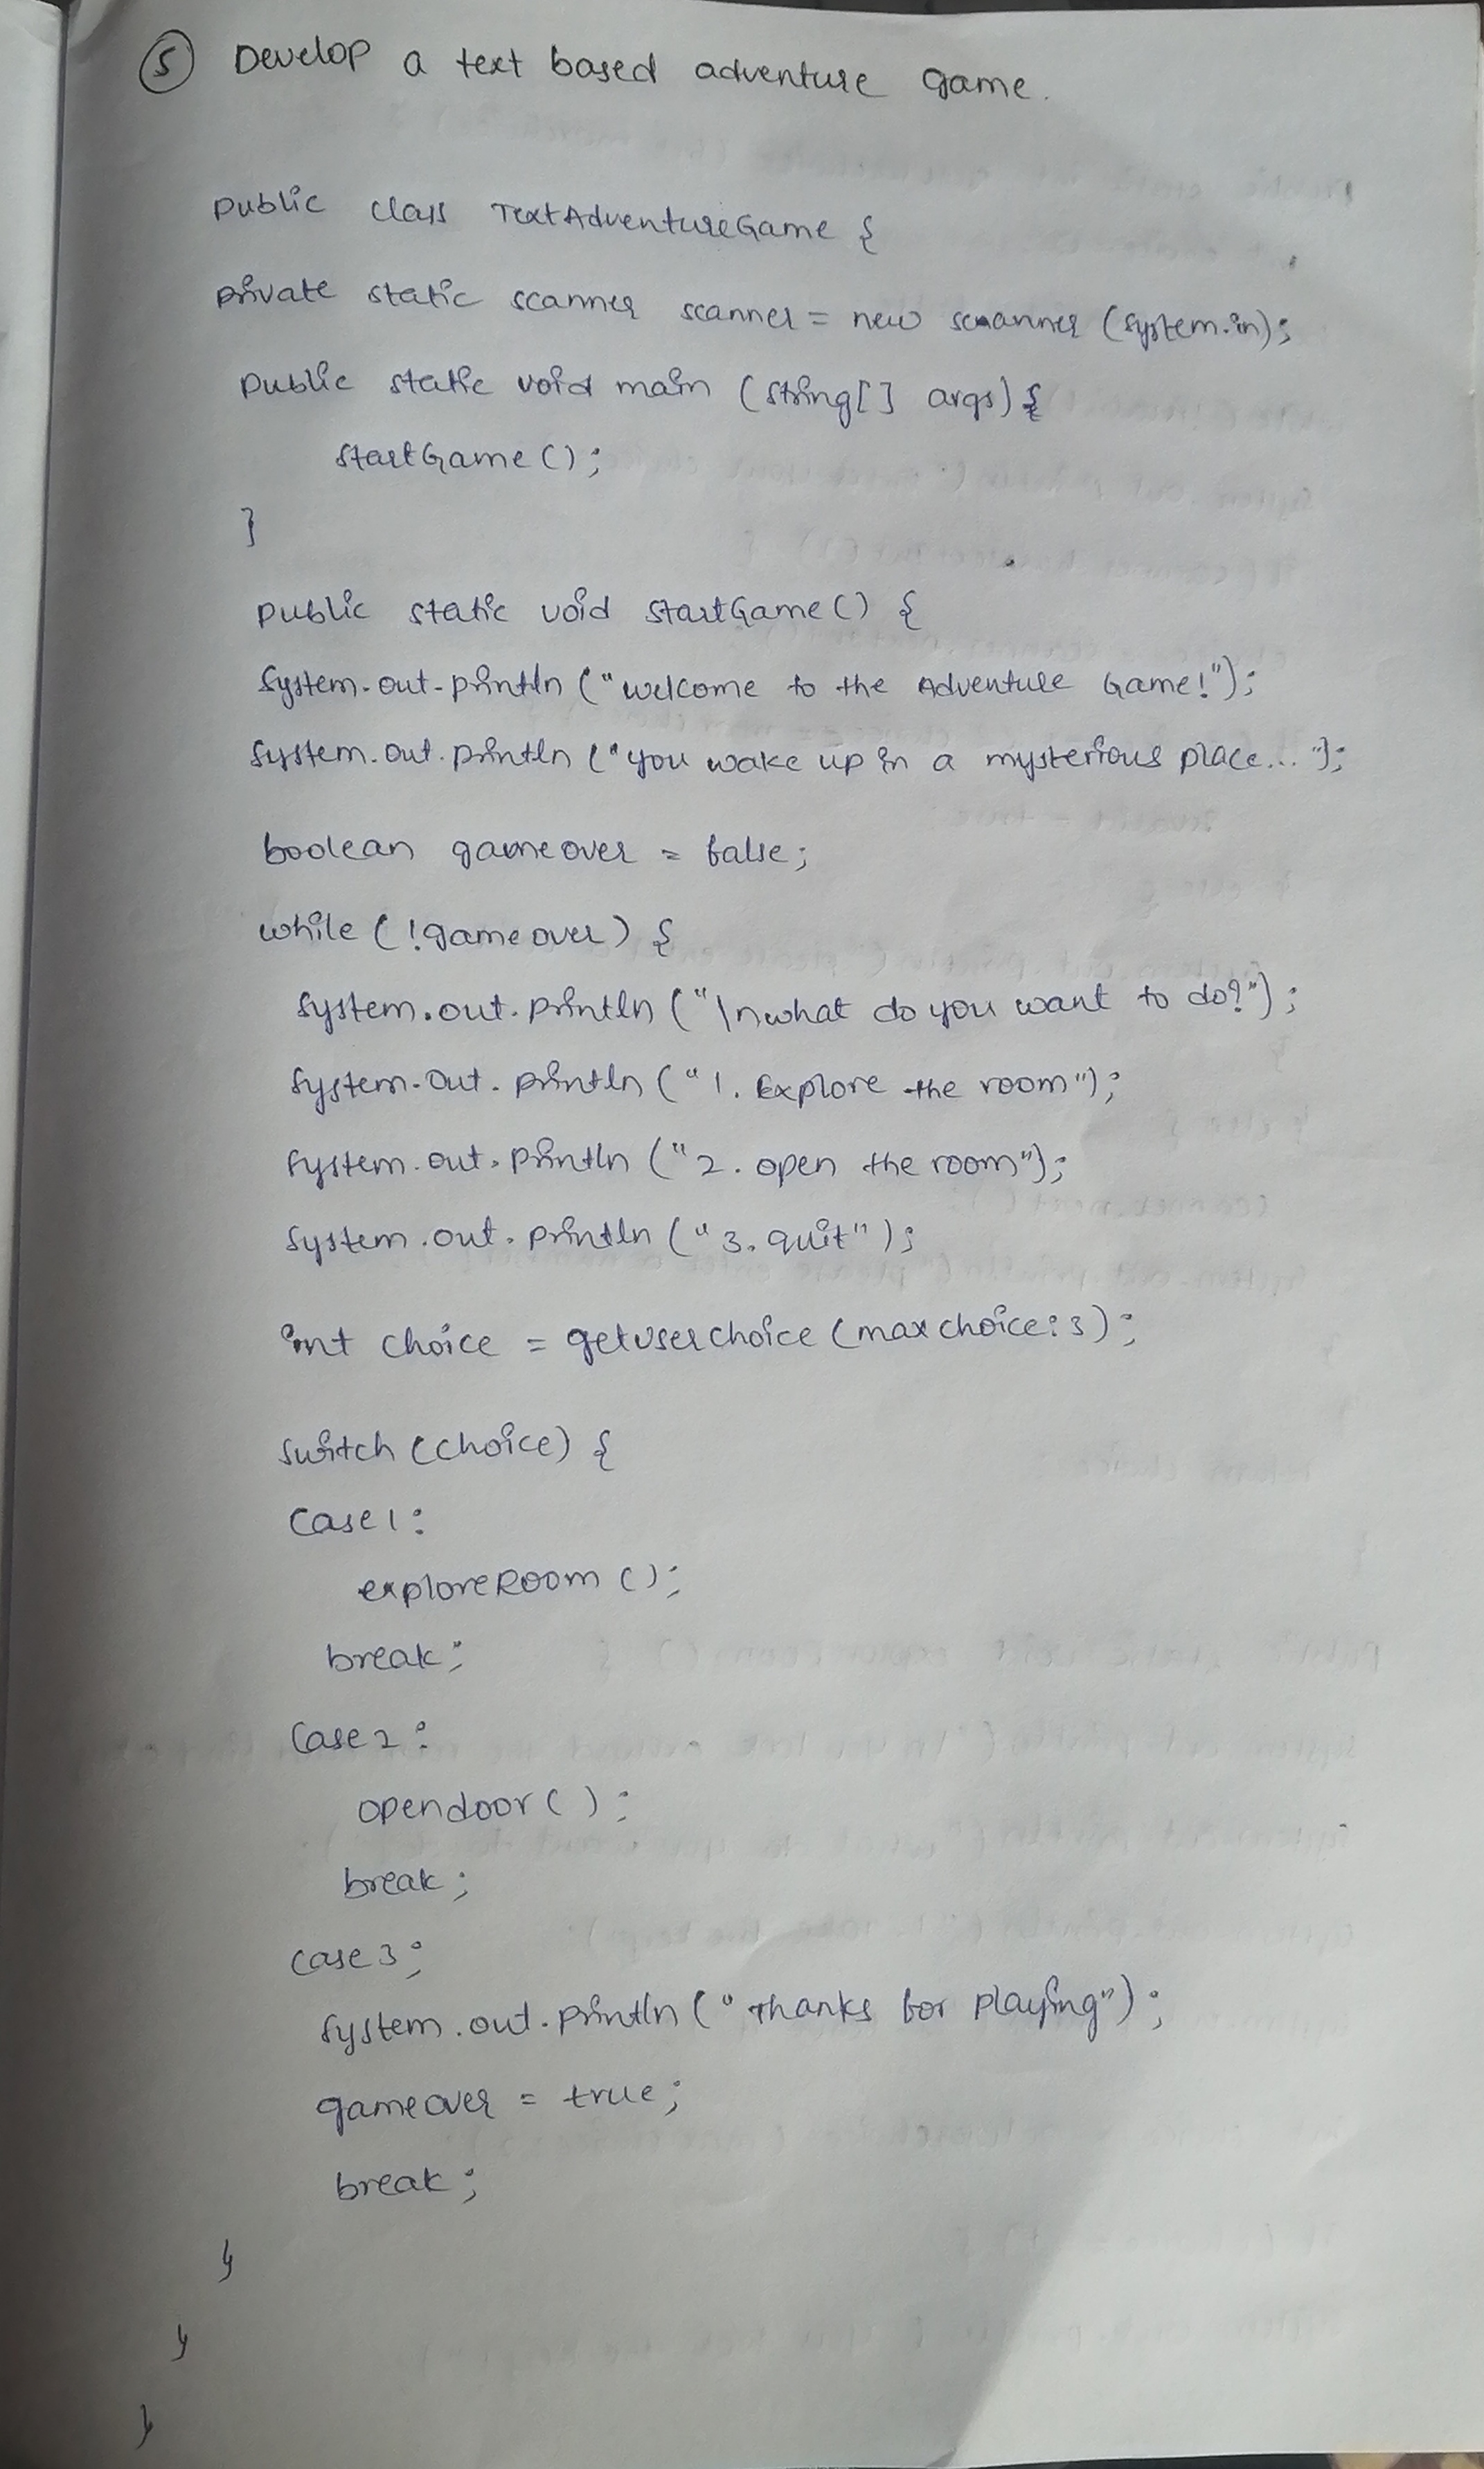 5 Develop a text based adventure game.
public class TextAdventureGame {
private static scanner scanner = new scanner (system.in);
public static void main (string[] args) {
startGame ();
}
public static void startGame () {
system.out.println ("welcome to the Adventure Game!");
system.out.println ("you wake up in a mysterious place...");
boolean gameover = false;
while (!gameover) {
system.out.println ("\nwhat do you want to do?");
system.out.println ("1. Explore the room");
system.out.println ("2. open the room");
system.out.println ("3. quit");
int choice = getuserchoice (maxchoice: 3);
switch (choice) {
case 1:
exploreRoom ();
break;
case 2:
opendoor ();
break;
case 3;
system.out.println ("Thanks for playing");
gameover = true;
break;
}
}
}